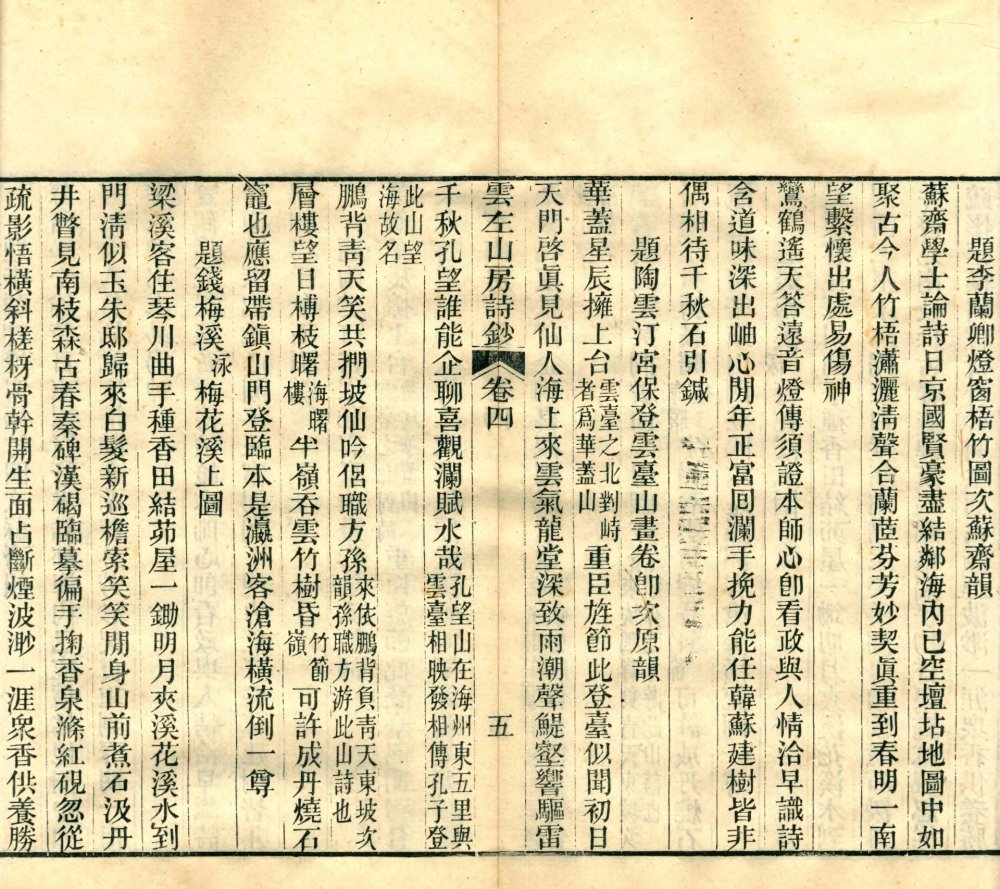 題李蘭卿燈窗梧竹圖次蘇齋韻
蘇齋學士論詩日京國賢豪盡結鄰海內已空壇坫地圖中如
聚古今人竹梧瀟灑淸聲合蘭茝芬芳妙契眞重到春明一南
望繫懷出處易傷神
鸞鶴遙天答遠音燈傳須證本師心卽看政與人情洽早識詩
含道味深出岫心閒年正富囘瀾手挽力能任韓蘇建樹皆非
偶相待千秋石引鍼
題陶雲汀宮保登雲臺山畫卷卽次原韻
華蓋星辰擁上台雲臺之北對峙者爲華蓋山重臣旌節此登臺似聞初日
天門啓眞見仙人海上來雲氣龍堂深致雨潮聲鯷壑響驅雷
雲左山房詩鈔 卷四 五
千秋孔望誰能企聊喜觀瀾賦水哉孔望山在海州東五里與雲臺相映發相傳孔子登
此山望海故名
鵬背靑天笑共捫坡仙吟侶職方孫來依鵬背負靑天東坡次韻孫職方游此山詩也
層樓望日榑枝曙海曙樓半嶺吞雲竹樹昏竹節嶺可許成丹燒石
竈也應留帶鎭山門登臨本是瀛洲客滄海橫流倒一尊
題錢梅溪泳梅花溪上圖
梁溪客住琴川曲手種香田結茆屋一鋤明月夾溪花溪水到
門淸似玉朱邸歸來白髮新巡檐索笑笑閒身山前煮石汲丹
井瞥見南枝森古春秦碑漢碣臨摹徧手掬香泉滌紅硯忽從
疏影悟橫斜槎枒骨幹開生面占斷煙波渺一涯衆香供養勝